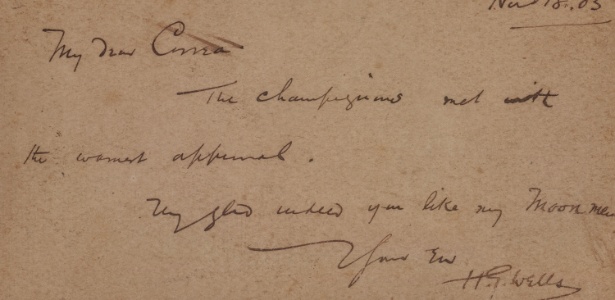 My dear
The champignons met with
the warmest approval.
Very glad indeed you like my Moon
Yours Ever
H.G. Wells